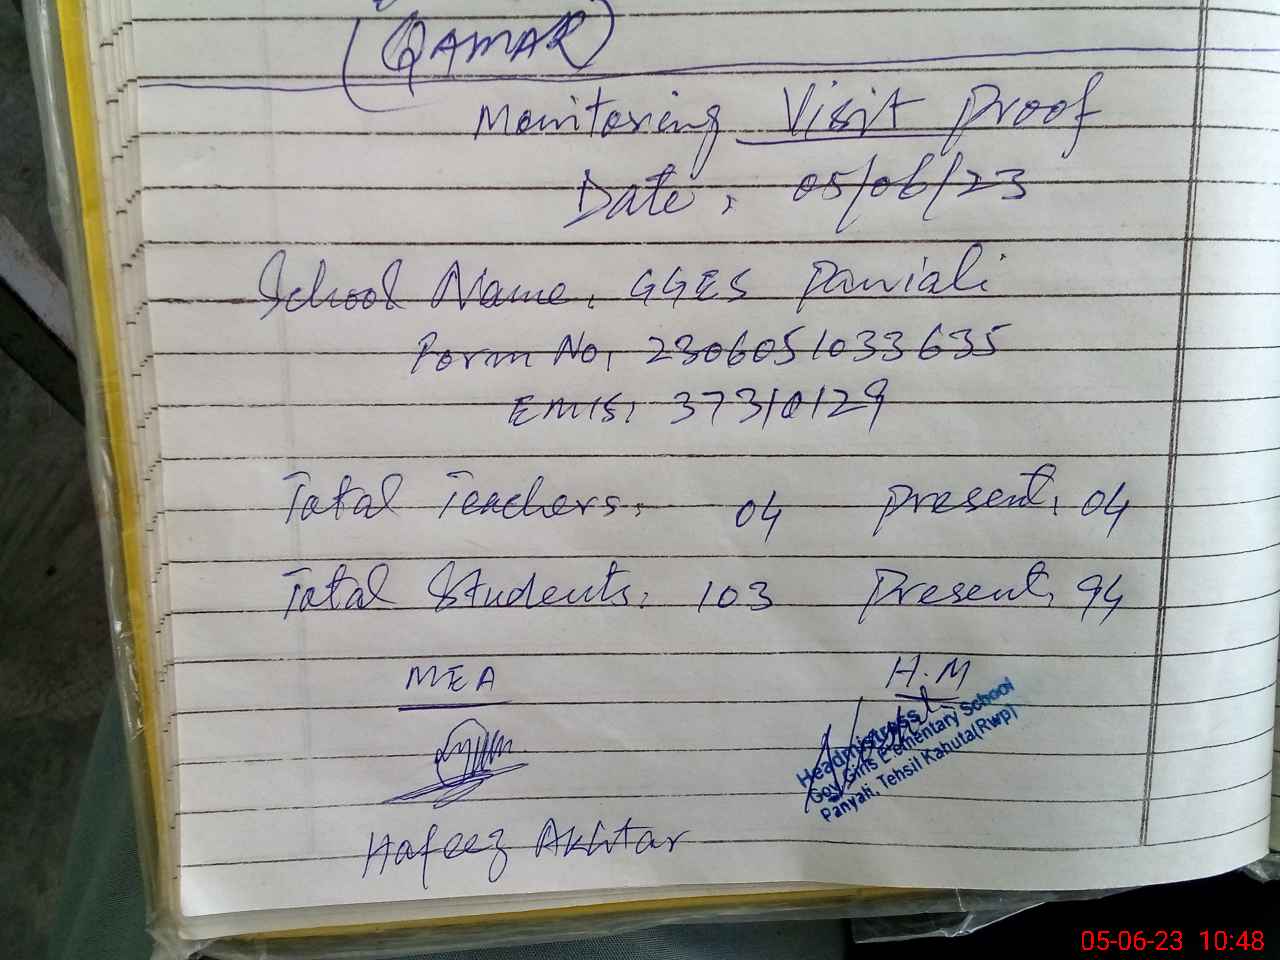 (QAMAR)
Monitoring Visit Proof
Date: 05/06/23
School Name: GGES Paniali
Form No: 2306051033635
EMIS: 37310129
Total Teachers: 04 Present: 04
Total Students: 103 Present: 94
MEA H.M
Headmistress
Gov. Girls Elementary School
Panyali, Tehsil Kahuta(Rwp)
Hafeez Akhtar
05-06-23 10:48